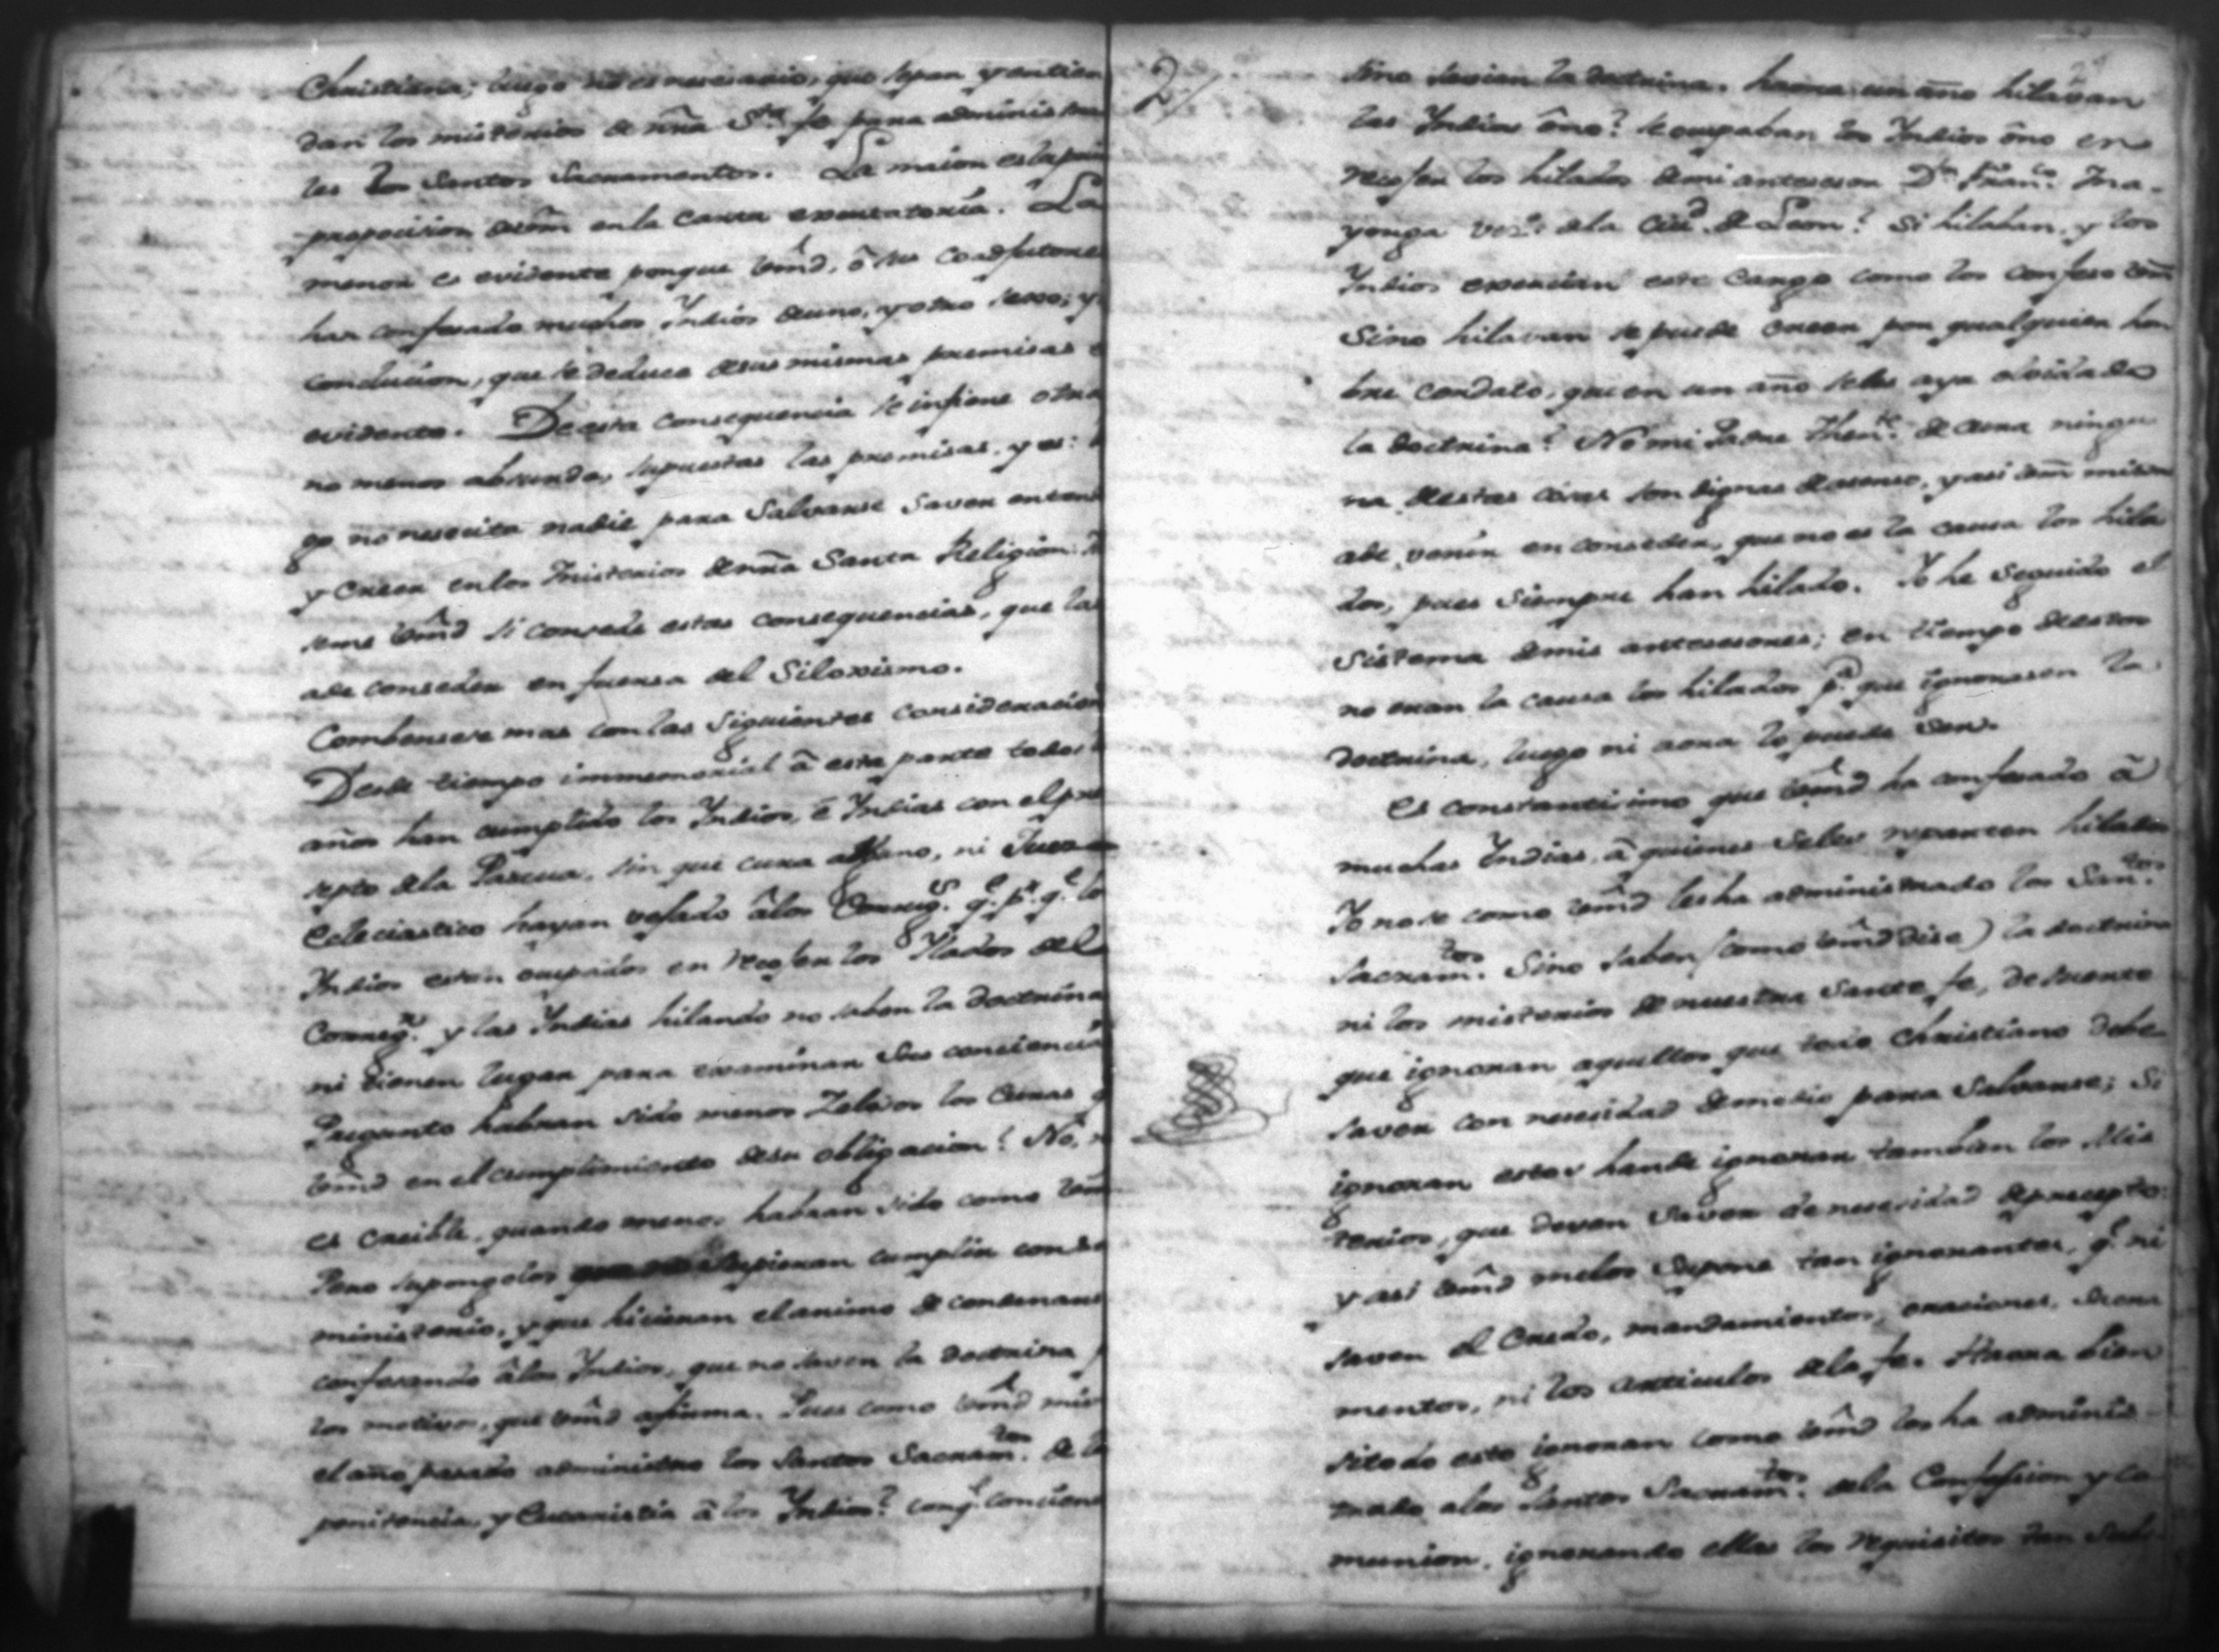 Christiana; luego no es nesesario, que sepan y entien
dan los misterios de nrâ S.ta fe para adminis trar
les los Santos Sacramentos. La maior es la
proposicion en la Carta exortatoria. La
menor es evidente porque Vmd, ô sus Coadjutores
han confesado muchos Indios de uno, y otro sexo; y
conclucion, que se deduce de sus mismas premisas
evidente. De esta consequencia se infiere otra
no menos absurda, supuestas las premisas, y es:
go no nesecita nadie para Salvarse Saver entend
y Creer en los Misterios de nrâ Santa Religion:
seme Vmd si consede estas consequencias, que las
ade conseder en fuersa del Siloxismo.
Combensere mas con las Siguientes Consideracion
Desde tiempo immemorial â esta parte todos
años han cumplido los Indios, ê Indias con el pre
septo dela Pascua, sin que cura alguno, ni Juez
Ecleciastico hayan vejado âlos Correg.s q.e p.r q.e lo
Indios estan ocupados en recojer los Ilados del
Correg.r y las Indias hilando no saben la doctrina
ni tienen lugar para examinar Sus conciencia
Pregunto habran sido menos Zelosos los Curas q
Vmd en el cumplimiento desu obligacion? No, n
es creible, quando menos habran sido como Vm
Pero supongolos supieran cumplir con su
ministerio, y que hicieran el animo de condenarse
confesando âlos Indios, que no saven la doctrina p
los motivos, que Vmd afirma. Pues como Vmd mis
el año pasado administro los Santos Sacram.tos de la
penitencia, y Eucaristia â los Indios? conq.e concien
2/
sino savian la doctrina. haora un año hilavan
las Indias ôno? se ocupaban los Indios ôno en
recojer los hilados de mi antesesor D.n Fran.co Ma-
yorga vez.o dela Ciu.d de Leon? Si hilaban, y los
Indios exercian este Cargo como los confeso Vm
Sino hilavan se puede creer por qualquier hom
bre cordato, que en un año seles aya olvidado
la doctrina? No mi Padre Then.te de cura ningu
na de estas cosas son dignas de asenso, y asi Vm mismo
ade venir en conseder, que no es la causa los hila
dos, pues Siempre han hilado. Yo he Seguido el
Sistema de mis antesesores; en tiempo de estos
no eran la causa los hilados p.a que ignorasen la
doctrina, luego ni aora lo puede Ser.
Es constantisimo que Vmd ha confesado â
muchas Indias, â quienes Seles reparten hilados
Yo no se como Vmd les ha administrado los San.tos
Sacram.tos Sino saben (como Vmd dise) la doctrina
ni los misterios de nuestra Santa fe, de suerte
que ignoran aquellos que todo Christiano debe
saver con nesesidad de medio para Salvarse; Si
ignoran estos hande ignorar tambien los Mis
terios, que deven Saver de nesesidad de precepto:
y asi Vmd melos Supone tan ignorantes, q.e ni
saven el Credo, mandamientos, oraciones, Sacra
mentos, ni los articulos dela fe. Haora bien
sitodo esto ignoran como Vmd les ha adminis
trado alos Santos Sacram.tos dela Confesion y Co
munion, ignorando ellas los requisitos tan